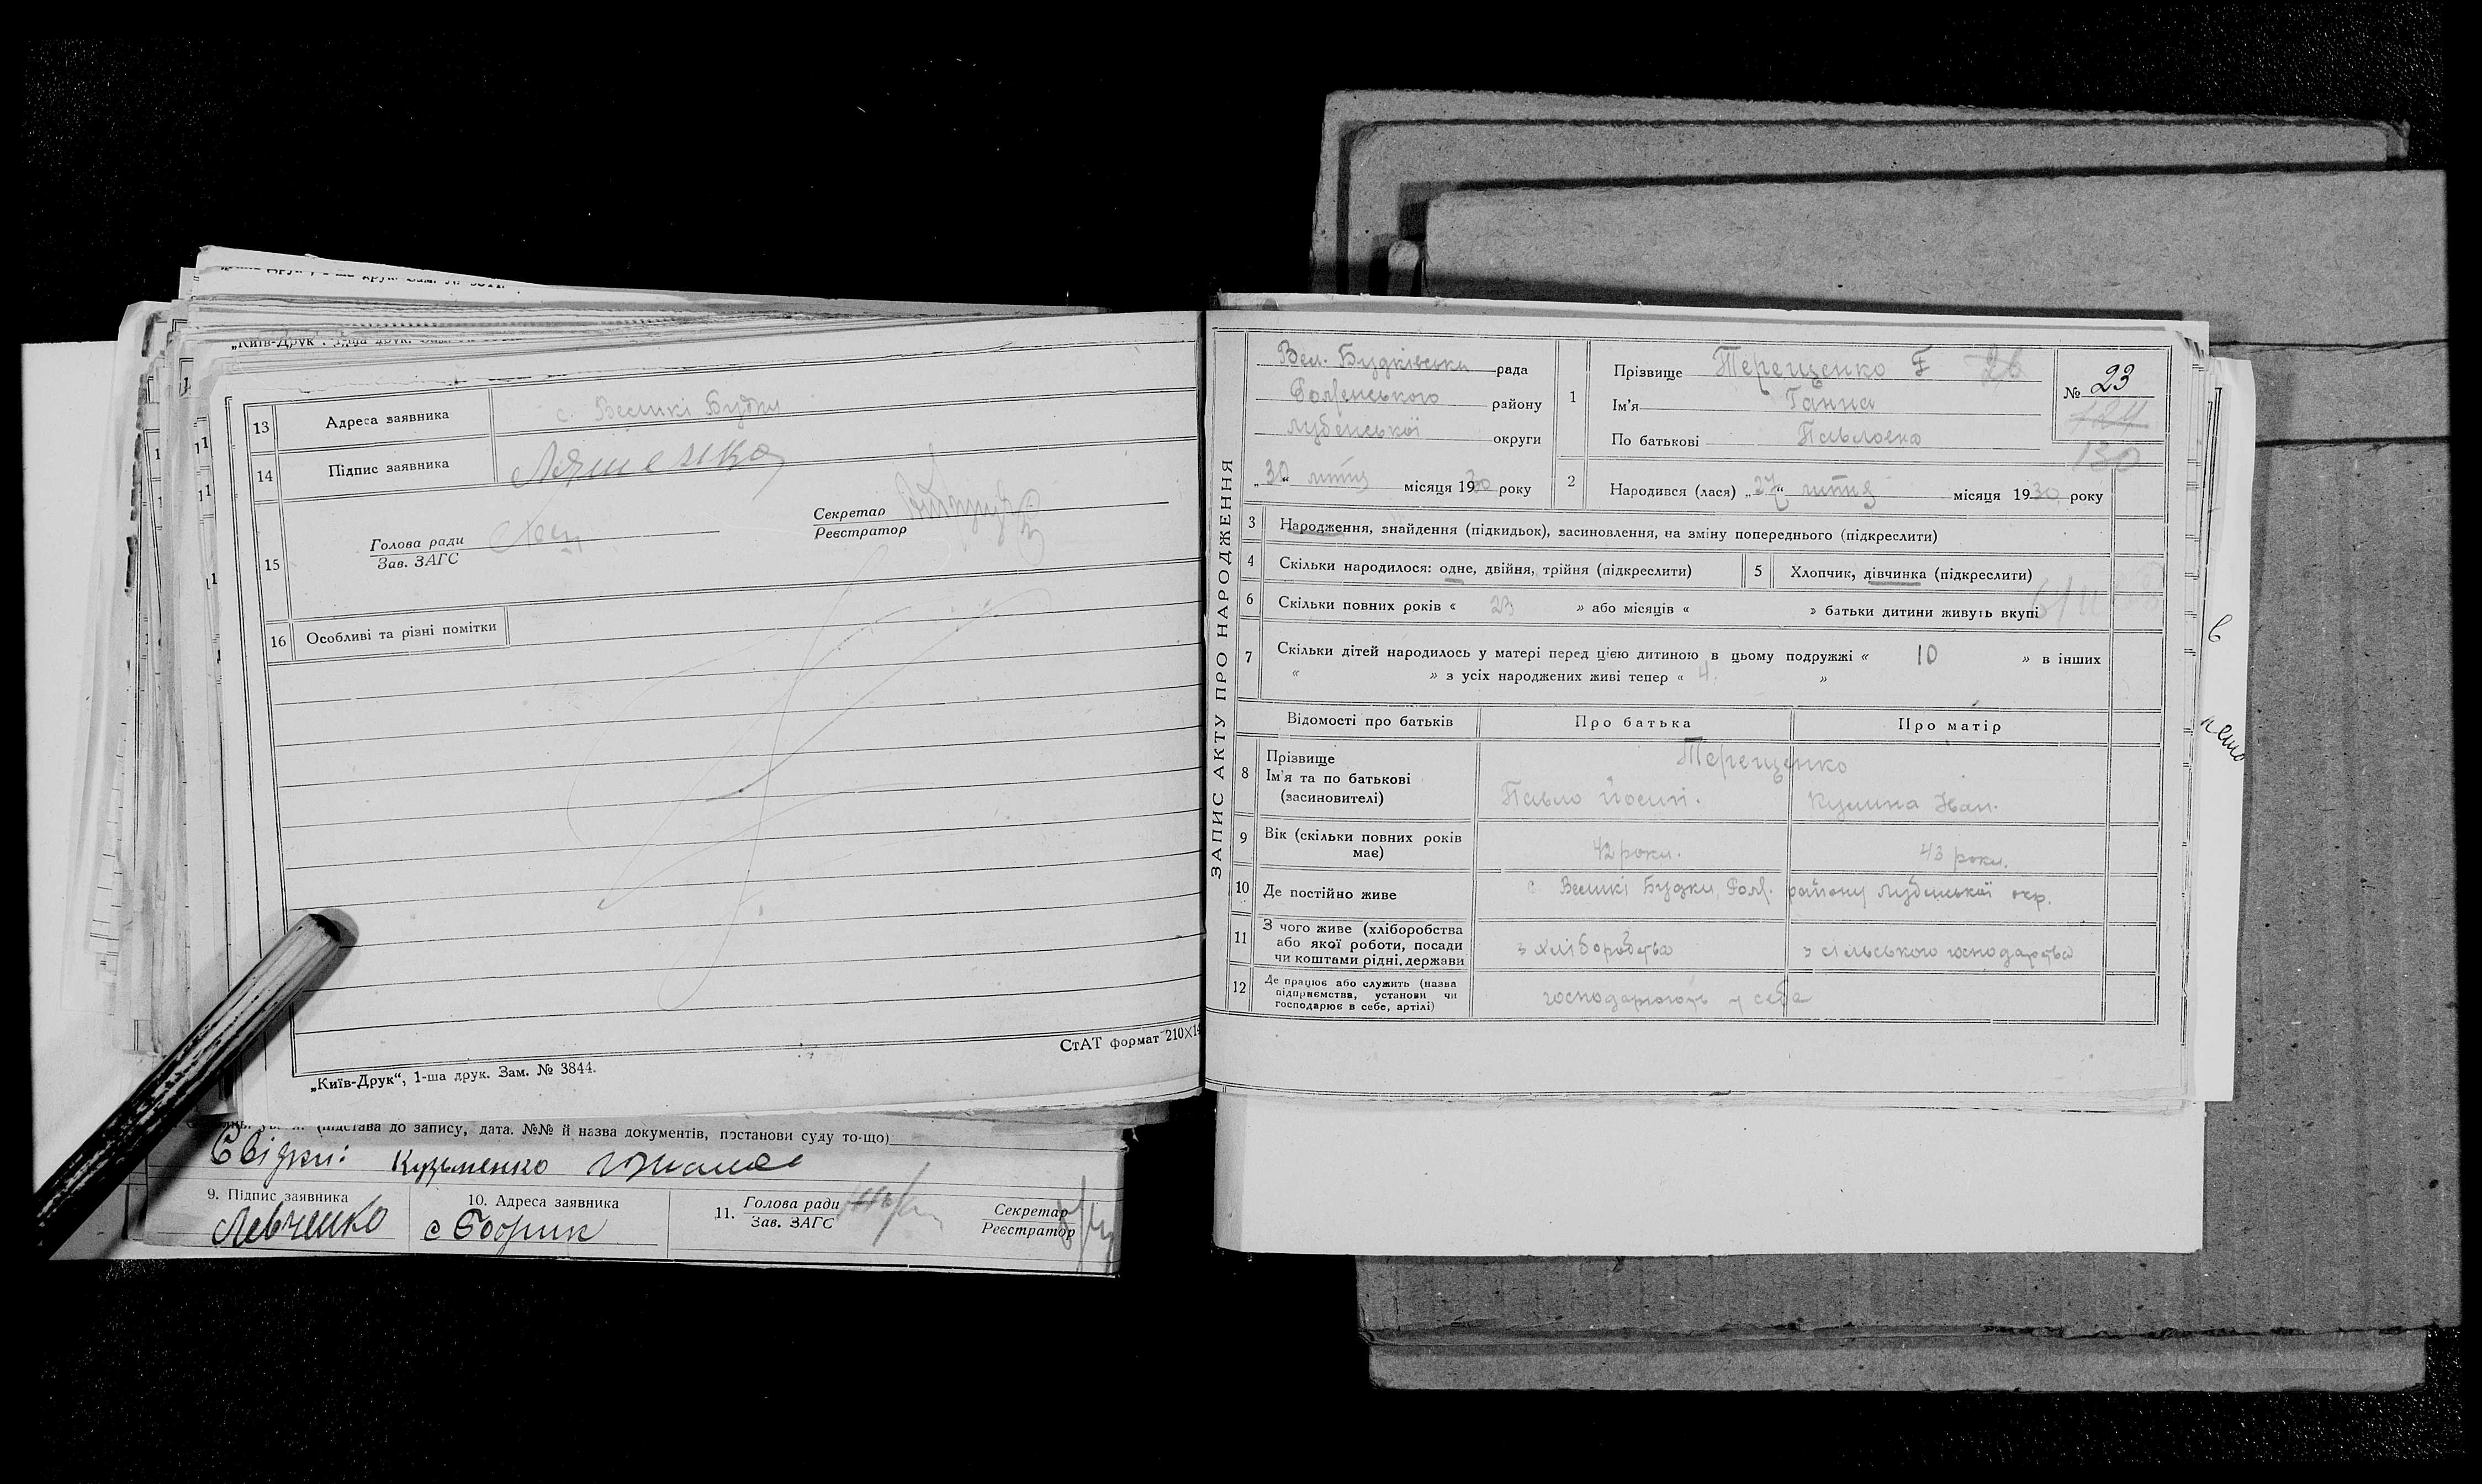 „Київ-Друк“, 1-ша друк. Зам.
13 Адреса заявника с. Великі Будки
14 Підпис заявника Ляшенко
15 Голова ради
Зав. ЗАГС
Секретар
Реєстратор
16 Особливі та різні помітки
СтАТ формат 210X14
„Київ-Друк“, 1-ша друк. Зам. № 3844.
(підстава до запису, дата. №№ й назва документів, постанови суду то-що)
Свідки: Кузьменко
9. Підпис заявника
Левченко
10. Адреса заявника
11. Голова ради
Зав. ЗАГС
Секретар
Реєстратор
ЗАПИС АКТУ ПРО НАРОДЖЕННЯ
Вел. Будківська рада
району
Лубенської округи
„30“ липня місяця 1930 року
1 Прізвище Терещенко
Ім'я Ганна
По батькові Павловна
№ 23
124
130
2 Народився (лася) „27“ липня місяця 1930 року
3 Народження, знайдення (підкидьок), засиновлення, на зміну попереднього (підкреслити)
4 Скільки народилося: одне, двійня, трійня (підкреслити)
5 Хлопчик, дівчинка (підкреслити)
6 Скільки повних років « 23 » або місяців « » батьки дитини живуть вкупі
7 Скільки дітей народилось у матері перед цією дитиною в цьому подружжі « 10 » в інших
« » з усіх народжених живі тепер « 4. »
Відомості про батьків Про батька Про матір
8 Прізвище
Ім'я та по батькові
(засиновителі)
Терещенко
Павло Йосип. Кулина Іван.
9 Вік (скільки повних років має) 42 роки. 43 роки.
10 Де постійно живе с Великі Будки, району Лубенської окр.
11 З чого живе (хліборобства
або якої роботи, посади
чи коштами рідні, держави
з хліборобства з сільського господарства
12 Де працює або служить (назва
підприємства, установи чи
господарює в себе, артілі)
господарюють у себе